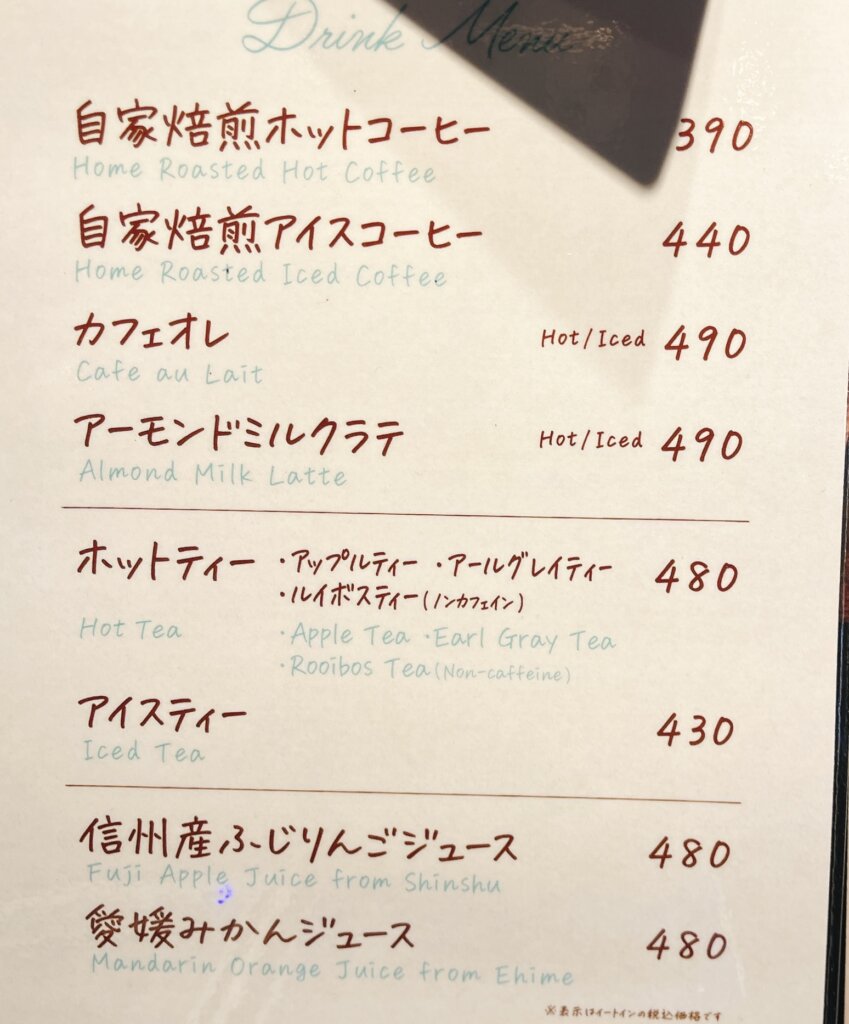 Drink Menu
自家焙煎ホットコーヒー 390
Home Roasted Hot Coffee
自家焙煎アイスコーヒー 440
Home Roasted Iced Coffee
カフェオレ Hot/Iced 490
Cafe au Lait
アーモンドミルクラテ Hot/Iced 490
Almond Milk Latte
ホットティー ・アップルティー ・アールグレイティー 480
・ルイボスティー(ノンカフェイン)
Hot Tea ・Apple Tea ・Earl Gray Tea
・Rooibos Tea(Non-caffeine)
アイスティー 430
Iced Tea
信州産ふじりんごジュース 480
Fuji Apple Juice from Shinshu
愛媛みかんジュース 480
Mandarin Orange Juice from Ehime
※表示はイートインの税込価格です